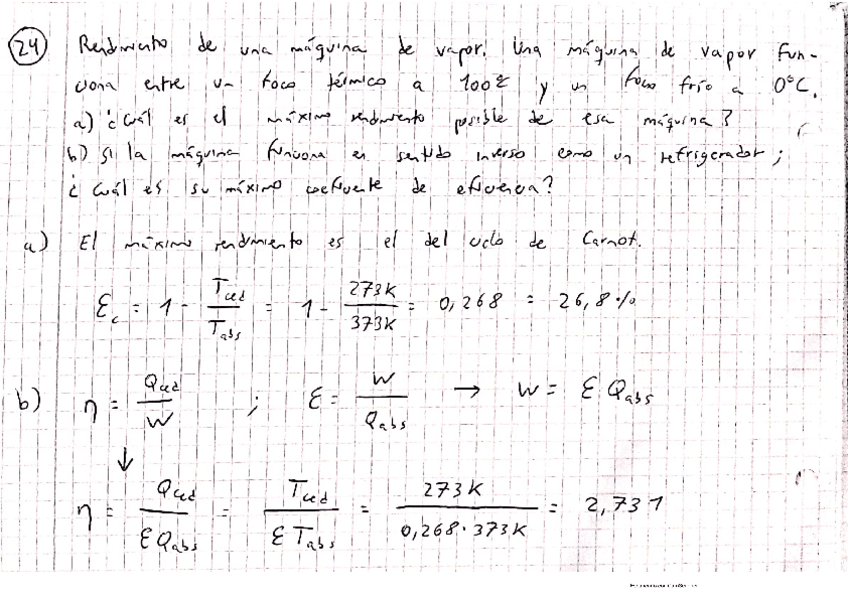 24 Rendimiento de una máquina de vapor. Una máquina de vapor fun-
ciona entre un foco térmico a 100ºC y un foco frío a 0ºC.
a) ¿Cuál es el máximo rendimiento posible de esa máquina?
b) Si la máquina funciona en sentido inverso como un refrigerador,
¿Cuál es su máximo coeficiente de eficiencia?
a) El máximo rendimiento es el del ciclo de Carnot.
ε_c = 1 - T_ced / T_abs = 1 - 273K / 373K = 0,268 = 26,8 %
b) η = Q_ced / W ; ε = W / Q_abs → W = ε Q_abs
↓
η = Q_ced / ε Q_abs = T_ced / ε T_abs = 273K / 0,268·373K = 2,731